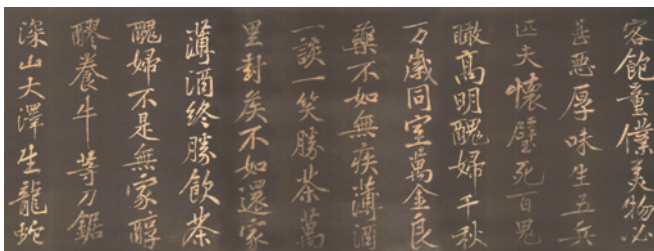 客飽童僕美物必
甚惡厚味生五兵
匹夫懷璧死百鬼
瞰高明醜婦千秋
万歲同室萬金良
藥不如無疾薄酒
一談一笑勝茶萬
里封侯不如還家
薄酒終勝飲茶
醜婦不是無家醇
醪養牛等刀鋸
深山大澤生龍蛇